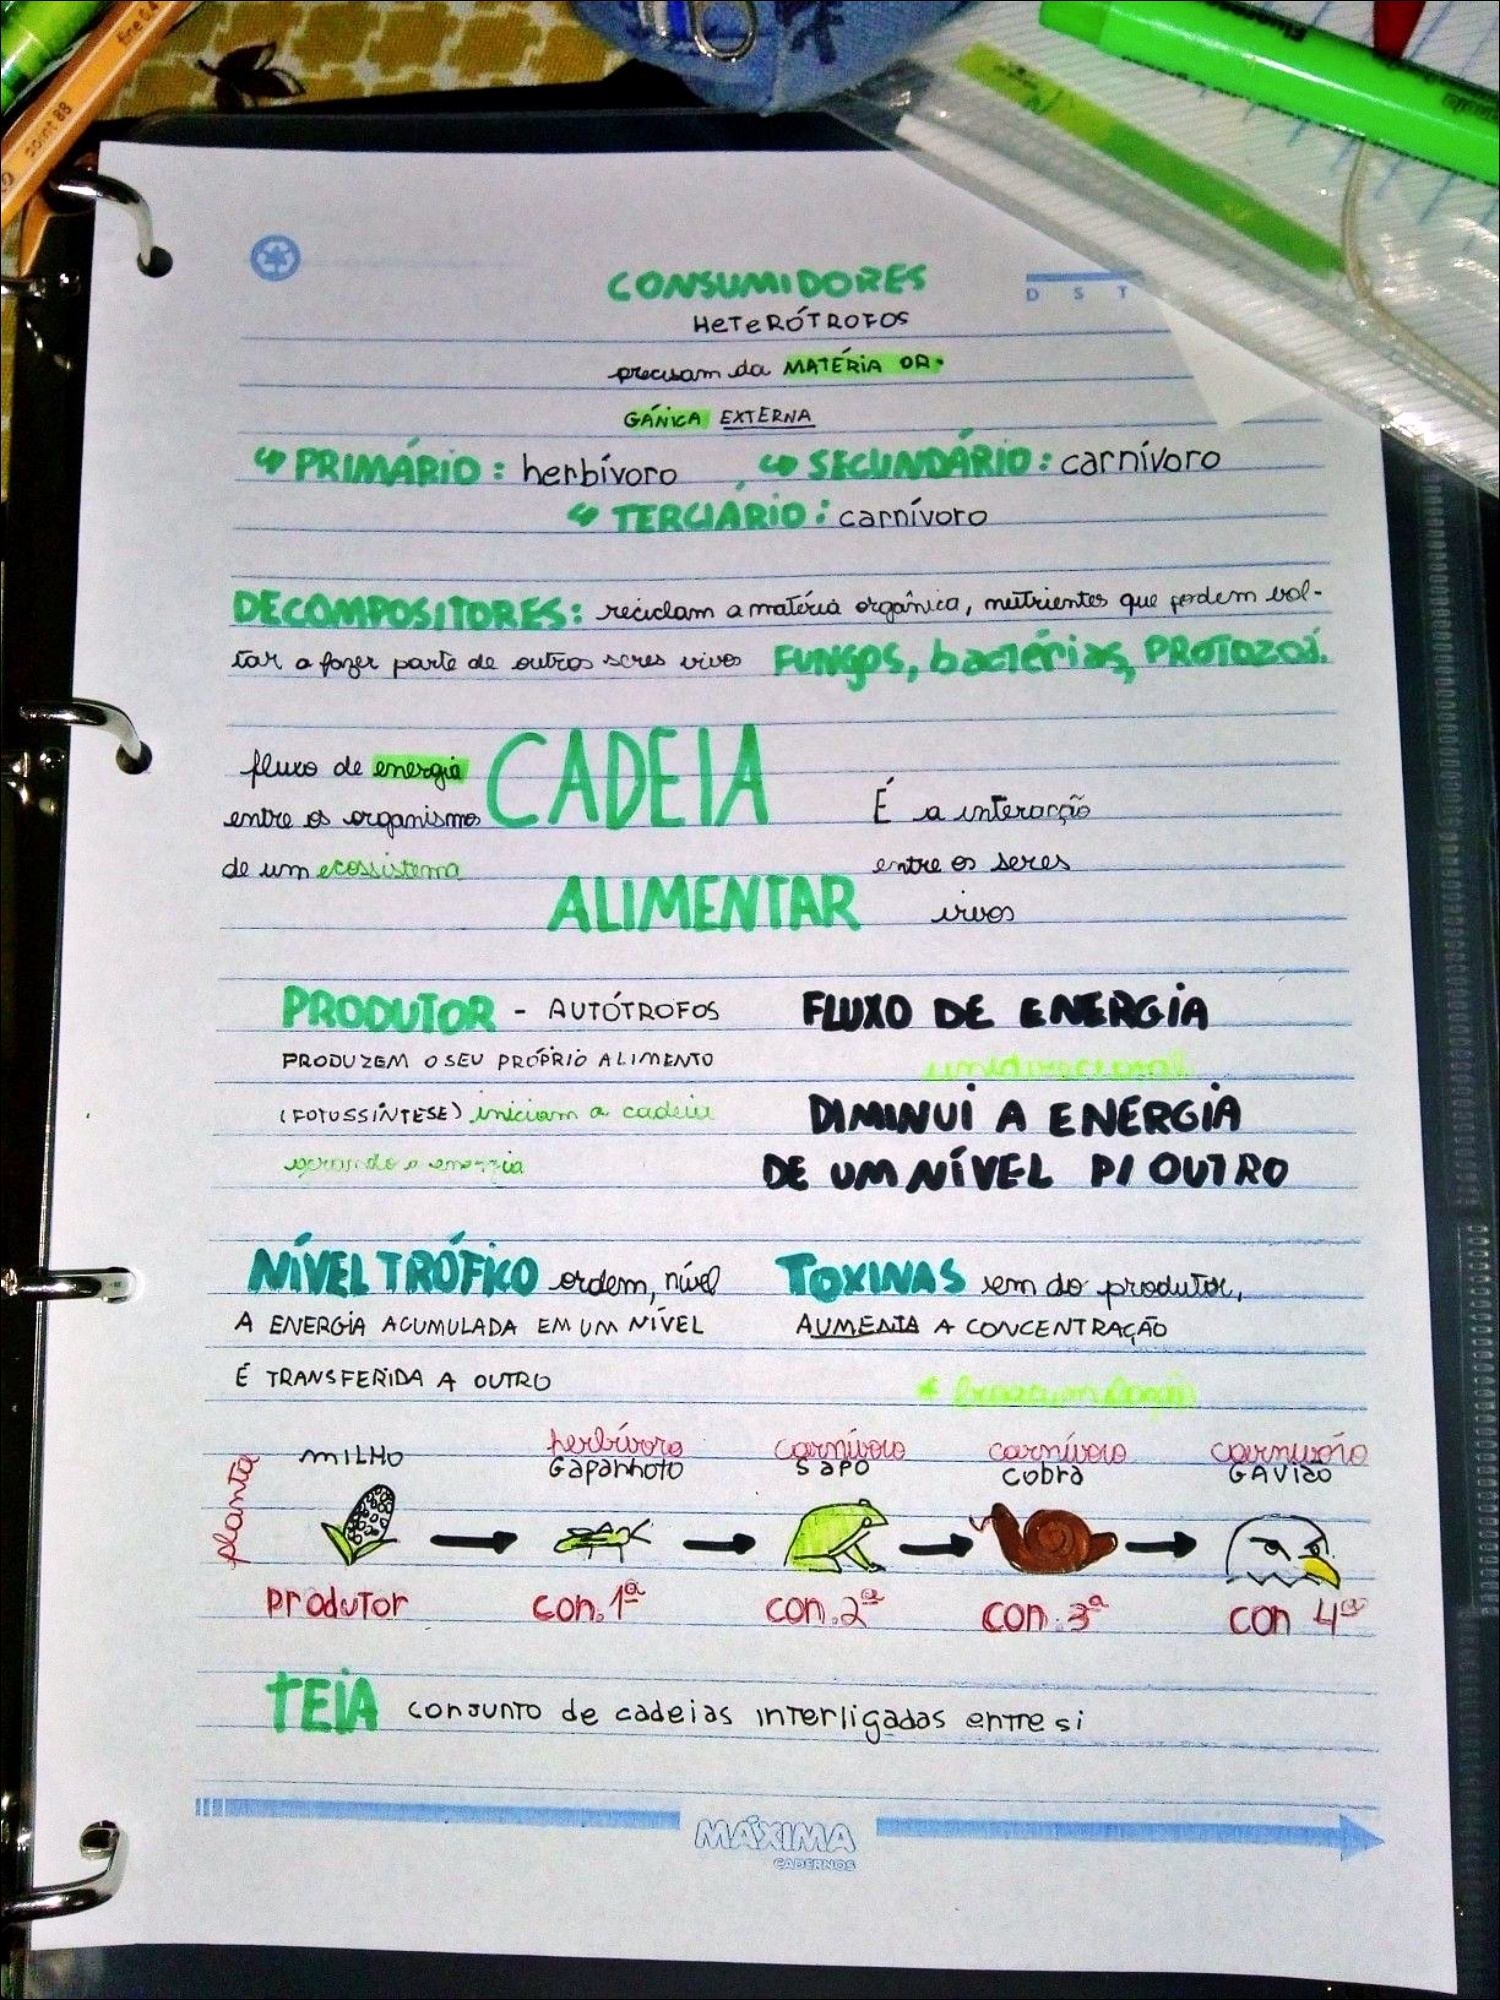 fine 0.4
point 88
CONSUMIDORES
D S T
HETERÓTROFOS
precisam da MATÉRIA OR-
GÂNICA EXTERNA
↳ PRIMÁRIO: herbívoro ↳ SECUNDÁRIO: carnívoro
↳ TERCIÁRIO: carnívoro
DECOMPOSITORES: reciclam a matéria orgânica, nutrientes que podem vol-
tar a fazer parte de outros seres vivos FUNGOS, bactérias, PROTOZOÁ.
fluxo de energia
entre os organismos
de um ecossistema
CADEIA
ALIMENTAR
É a interação
entre os seres
vivos
PRODUTOR - AUTÓTROFOS
PRODUZEM O SEU PRÓPRIO ALIMENTO
(FOTOSSÍNTESE) iniciam a cadeia
gerando a energia
FLUXO DE ENERGIA
unidirecional
DIMINUI A ENERGIA
DE UM NÍVEL P/ OUTRO
NÍVEL TRÓFICO ordem, nível
A ENERGIA ACUMULADA EM UM NÍVEL
É TRANSFERIDA A OUTRO
TOXINAS vem do produtor,
AUMENTA A CONCENTRAÇÃO
planta
MILHO
produtor
herbívoro
Gafanhoto
con. 1ª
carnívoro
SAPO
con. 2ª
carnívoro
cobra
con. 3ª
carnívoro
GAVIÃO
con 4ª
TEIA conjunto de cadeias interligadas entre si
MÁXIMA
CADERNOS